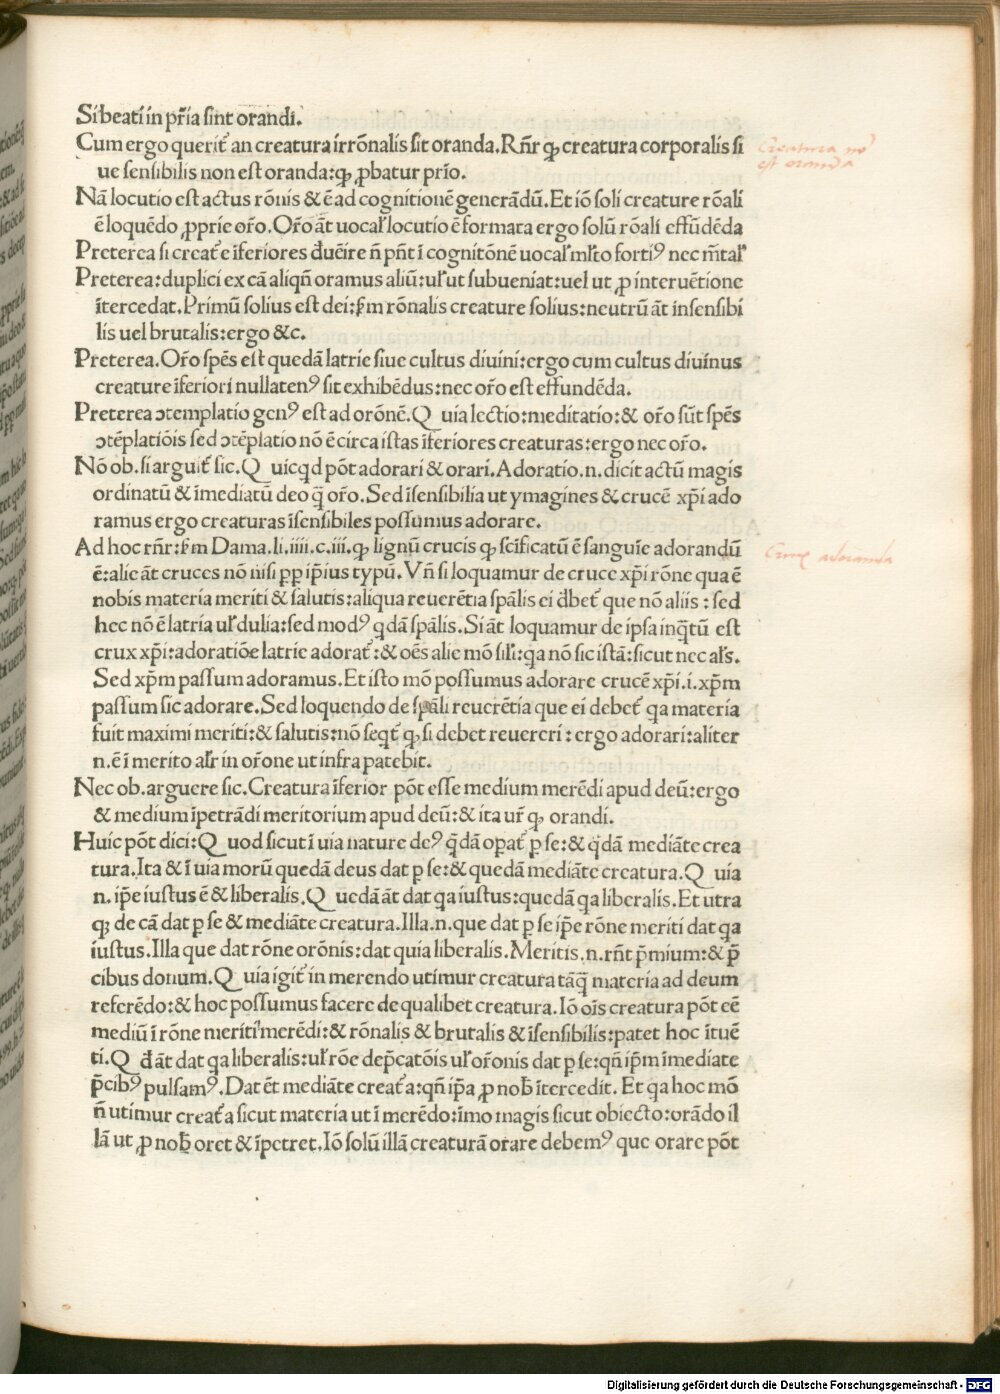 Si beati in pr̄ia sint orandi.
Cum ergo querit᷑ an creatura irrōnalis sit oranda. Rn̄r ꝙ creatura corporalis si
ue sensibilis non est oranda:ꝙ ꝓbatur prīo.
Nā locutio est actus rōnis & ē ad cognitionē generādū. Et iō soli creature rōali
ē loquēdo ꝓprie or̄o. Or̄o āt uocal̓ locutio ē formata ergo solū rōali effūdēda
Preterea si creat᷑e īferiores đueīre n̄ pn̄t ī cognitōnē uocal̓ ml̓to forti⁹ nec m̄tal̓
Preterea:duplici ex cā aliqn̄ oramus aliū:ul̓ ut subueniat:uel ut ꝓ interuētione
ītercedat. Primū solius est dei: ẜm rōnalis creature solius:neutrū āt insensibi
lis uel brutalis:ergo &c.
Preterea. Or̄o sp̄es est quedā latrie siue cultus diuini:ergo cum cultus diuinus
creature īferiori nullaten⁹ sit exhibēdus:nec or̄o est effundēda.
Preterea ↄtemplatio gen⁹ est ad orōnē. Q uia lectio:meditatio:& or̄o sūt sp̄es
ↄtēplatiōis sed ↄtēplatio nō ē circa istas īferiores creaturas:ergo nec or̄o.
Nō ob. si arguit᷑ sic. Q uicqd pōt adorari & orari. Adoratio.n. dicit actū magis
ordinatū & īmediatū deo q̄ or̄o. Sed īsensibilia ut ymagines & crucē xp̄i ado
ramus ergo creaturas īsensibiles possumus adorare.
Ad hoc rn̄r: ẜm Dama. li. iiii. c. iii. ꝙ lignū crucis ꝙ scīficatū ē sanguīe adorandū
ē:alie āt cruces nō nisi ꝓp ip̄ius typū. Vn̄ si loquamur de cruce xp̄i rōne qua ē
nobis materia meriti & salutis:aliqua reuerētia sp̄alis ei d̄bet᷑ que nō aliis : sed
hec nō ē latria ul̓ dulia:sed mod⁹ qdā sp̄alis. Si āt loquamur de ipsa inq̄tū est
crux xp̄i:adoratiōe latrie adorat᷑:& oēs alie mō sil̓i:qa nō sic istā:sicut nec al̓s.
Sed xp̄m passum adoramus. Et isto mō possumus adorare crucē xp̄i.i. xp̄m
passum sic adorare. Sed loquendo de sp̄ali reuerētia que ei debet᷑ qa materia
fuit maximi meriti:& salutis:nō seqt᷑ ꝙ si debet reuereri : ergo adorari:aliter
n. ē ī merito al̓r in or̄one ut infra patebit.
Nec ob. arguere sic. Creatura īferior pōt esse medium merēdi apud deū:ergo
& medium īpetrādi meritorium apud deū:& ita ur̄ ꝙ orandi.
Huic pōt dici:Q uod sicut ī uia nature de⁹ qdā opat᷑ p se:& qdā mediāte crea
tura. Ita & ī uia morū quedā deus dat p se:& quedā mediāte creatura. Q uia
n. ip̄e iustus ē & liberalis. Q uedā āt dat qa iustus:quedā qa liberalis. Et utra
qꝫ de cā dat p se & mediāte creatura. Illa.n. que dat p se ip̄e rōne meriti dat qa
iustus. Illa que dat rōne orōnis:dat quia liberalis. Meritis .n. rn̄t p̄mium:& p̄
cibus donum. Q uia igit᷑ in merendo utimur creatura tāq̄ materia ad deum
referēdo:& hoc possumus facere de qualibet creatura. Iō oīs creatura pōt eē
mediū ī rōne meriti merēdi:& rōnalis & brutalis & īsensibilis:patet hoc ītuē
ti. Q đ āt dat qa liberalis:ul̓ rōe dep̄catōis ul̓ or̄onis dat p se:qn̄ ip̄m īmediate
p̄cib⁹ pulsam⁹. Dat ēt mediāte creat᷑a:qn̄ ip̄a ꝓ nob̄ ītercedit. Et qa hoc mō
n̄ utimur creat᷑a sicut materia ut ī merēdo:īmo magis sicut obiecto:orādo il
lā ut ꝓ nob̄ oret & īpetret. Iō solū illā creaturā orare debem⁹ que orare pōt
Creatura nō
est oranda
Crux adoranda
Digitalisierung gefördert durch die Deutsche Forschungsgemeinschaft - DFG